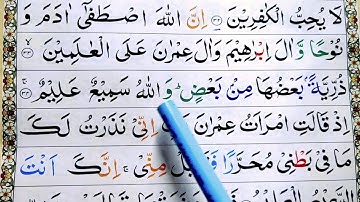 لَا يُحِبُّ الْكٰفِرِيْنَ ﴿۳۲﴾ اِنَّ اللّٰهَ اصْطَفٰۤى اٰدَمَ وَ
نُوْحًا وَّاٰلَ اِبْرٰهِيْمَ وَاٰلَ عِمْرٰنَ عَلَى الْعٰلَمِيْنَ ﴿۳۳﴾
ذُرِّيَّةًۢ بَعْضُهَا مِنْۢ بَعْضٍ ؕ وَاللّٰهُ سَمِيْعٌ عَلِيْمٌ ﴿۳۴﴾
اِذْ قَالَتِ امْرَاَتُ عِمْرٰنَ اِنِّيْ نَذَرْتُ لَكَ
مَا فِيْ بَطْنِيْ مُحَرَّرًا مِنِّيْ ۚ اِنَّكَ اَنْتَ